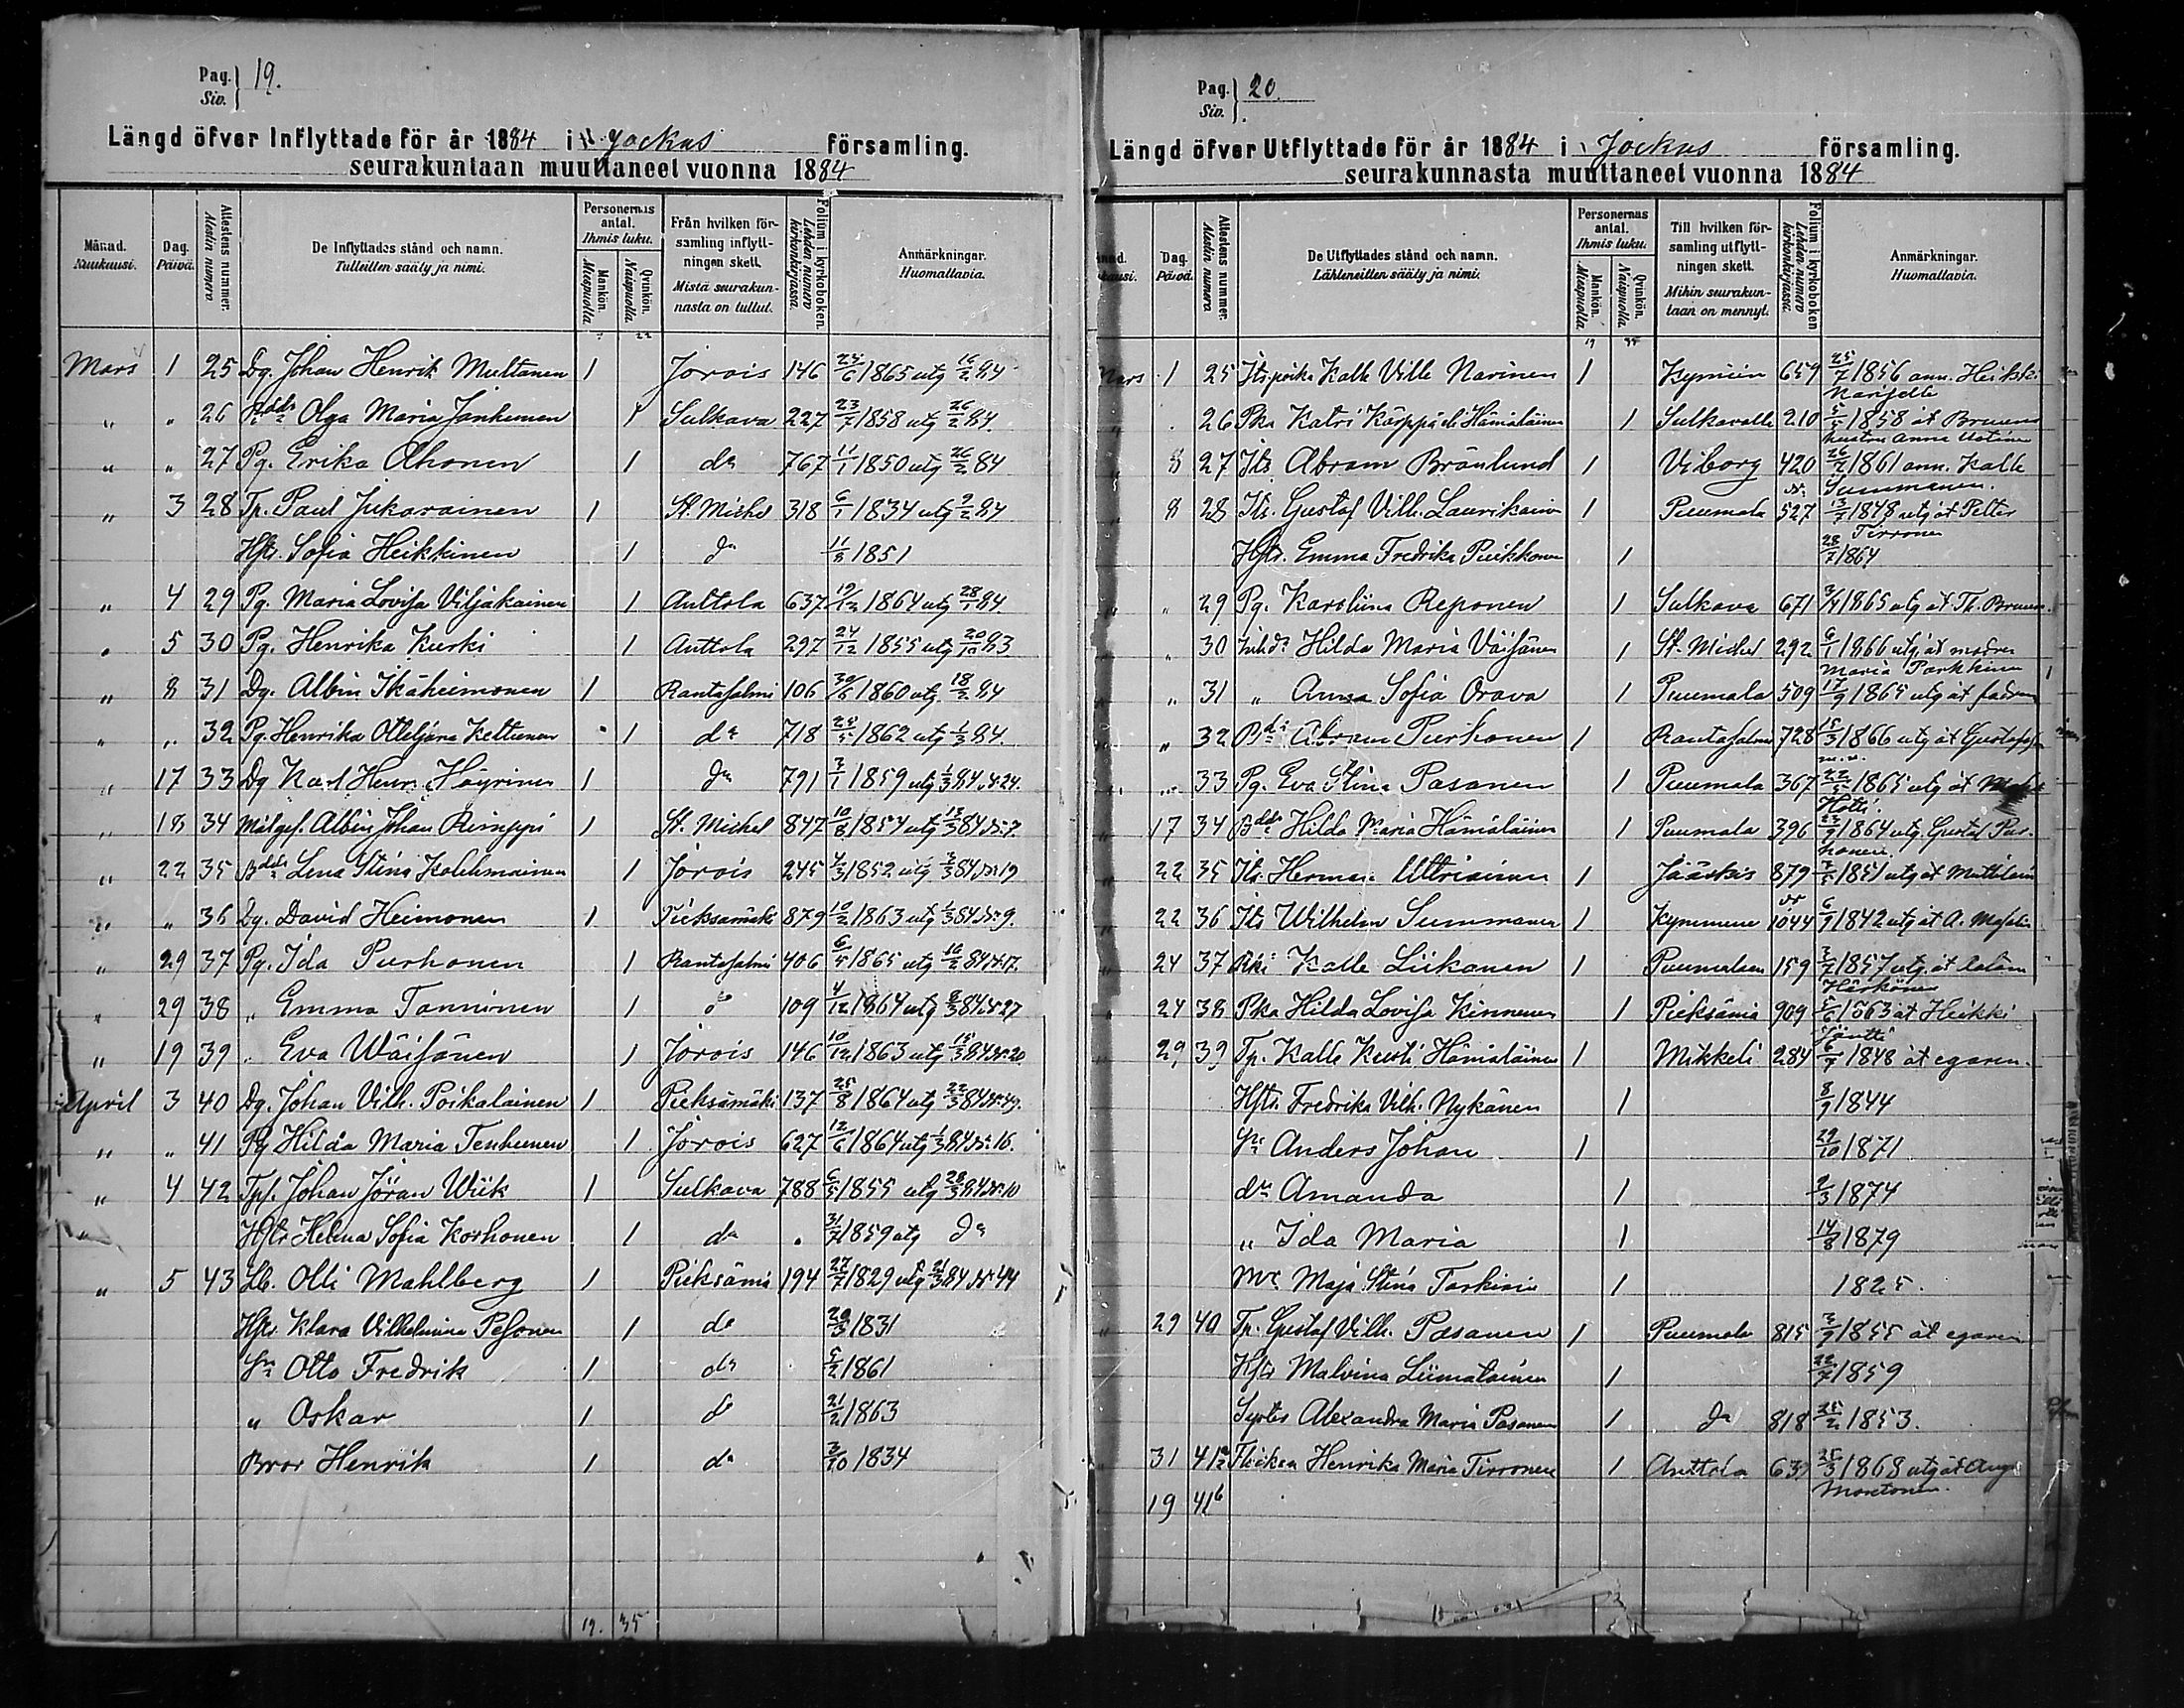 Pag. 19.
Siv.
Längd öfver Inflyttade för år 1884 i Jockas församling.
seurakuntaan muuttaneet vuonna 1884
Månad. Kuukausi. Dag. Päivä. Attestens nummer. Alestin numero De Inflyttades stånd och namn. Tulleitten sääty ja nimi. Personernas antal. Ihmis luku. Mankön. Miespuolia Qvinkön. Naispuolia Från hvilken församling inflyttningen skett. Mistä seurakunnasta on tullut. Folium i kyrkoboken. Lehden numero kirkonkirjassa. Anmärkningar. Huomattavia.
Mars 1 25 Dg. Johan Henrik Multanen 1 Jorois 146 1865 utg 84
" " 26 Olga Maria Janhunen 1 Sulkava 227 23/7 1858 utg 26/2 84.
" " 27 Pg. Erika Ahonen 1 do 767 11/1 1850 utg 26/2 84
" 3 28 Tp. Paul Jukarainen 1 St. Michel 318 6/1 1834 utg 2/2 84
Hstr. Sofia Heikkinen 1 do 11/8 1851
" 4 29 Pg. Maria Lovisa Viljakainen 1 Anttola 637 1864 utg 28/1 84
" 5 30 Pg. Henrika Kurki 1 Anttola 297 24/12 1855 utg 20/10 83
" 8 31 Dg. Albin Ikäheimonen 1 Rantasalmi 106 30/6 1860 utg. 18/2 84
" " 32 Pg. Henrika Ottiljana Kettunen 1 do 718 1862 utg 1/3 84.
" 17 33 Dg Karl Henr. Häyrinen 1 do 791 3/1 1859 utg 1/3 84 N:24.
" 18 34 Målges. Albin Johan Reimppi 1 St. Michel 847 10/8 1854 utg 84 N:7.
" 22 35 Lena Stina Kolehmainen 1 Jorois 245 4/3 1852 utg 84 N:19
" " 36 Dg. David Heimonen 1 Pieksämäki 879 10/2 1863 utg 1/3 84 N:9.
" 29 37 Pg. Ida Purhonen 1 Rantasalmi 406 6/5 1865 utg 16/2 84 N:17.
" 29 38 " Emma Tanninen 1 do 109 4/12 1864 utg 8/3 84 N:27
" 19 39 " Eva Wäisänen 1 Jorois 146 10/12 1863 utg 15/3 84 N:20.
April 3 40 Dg. Johan Vilh. Poikalainen 1 Pieksämäki 137 25/8 1864 utg 22/3 84 N:49.
" " 41 Pg Hilda Maria Tenhunen 1 Jorois 627 12/6 1864 utg 1/3 84 N:16.
" 4 42 Tpf. Johan Jöran Wiik 1 Sulkava 788 6/5 1855 utg 28/3 84 N:10
Hstr Helena Sofia Korhonen 1 do " 31/7 1859 utg do
" 5 43 Lb. Olli Mahlberg 1 Pieksämä 194 27/7 1829 utg 21/3 84 N:44
Hstr. Klara Vilhelmina Pesonen 1 do 20/3 1831
Sn Otto Fredrik 1 do 5/2 1861
" Oskar 1 do 21/2 1863
Bror Henrik 1 do 3/10 1834
19. 35
Pag. 20.
Siv.
Längd öfver Utflyttade för år 1884 i Jockas församling.
seurakunnasta muuttaneet vuonna 1884
Dag. Päivä Attestens nummer. Alestin numero De Utflyttades stånd och namn. Lähteneitten sääty ja nimi. Personernas antal. Ihmis luku. Mankön. Miespuolia Qvinkön. Naispuolia Till hvilken församling utflyttningen skett. Mihin seurakuntaan on mennyt. Folium i kyrkoboken Lehden numero kirkonkirjassa. Anmärkningar. Huomattavia.
19 35
Mars 1 25 Its. poika Kalle Ville Narinen 1 Kymiin 659 25/7 1856 ann. Heikki
Narjelle
26 Pka Katri Kärppä eli Hämäläinen 1 Sulkavalle 210 5/5 1858 åt
8 27 Its Abram Brönlund 1 Viborg 420 26/2 1861 ann. Kalle
Summanen.
8 28 Its. Gustaf Vilh. Laurikain 1 Puumala 527 13/7 1848 utg åt Petter
Tirronen
Hstr. Emma Fredrika Puikkonen 1 28/7 1864
" 29 Pg. Karoliina Reponen 1 Sulkava 671 3/4 1865 utg åt Th. Bruun.
" 30 Inhds Hilda Maria Väisänen 1 St. Michel 292 6/1 1866 utg åt modren
Maria Parkkinen
" 31 " Anna Sofia Orava 1 Puumala 509 17/9 1865 utg åt fadren
" 32 Abram Purhonen 1 Rantasalmi 728 15/3 1866 utg åt
" 33 Pg. Eva Stina Pasanen 1 Puumala 367 1865 utg åt
Hotti.
17 34 Hilda Maria Hämäläinen 1 Puumala 396 23/9 1864 utg. Gustaf Pur-
honen.
22 35 Its. Herman Uttriainen 1 Jääskis 879 1851 utg åt
22 36 Its Wilhelm Summanen 1 Kymmene 1044 6/9 1842 utg åt A.
24 37 Rki Kalle Liikanen 1 Puumalaan 159 3/7 1857 utg. åt
Härkönen
24 38 Pka Hilda Lovisa Kinnunen 1 Pieksämä 909 5/6 1863 åt Heikki
Jäntti
29 39 Tp. Kalle Kusti Hämäläinen 1 Mikkeli 284 6/7 1848 åt egaren.
Hstr. Fredrika Vilh. Nykänen 1 8/9 1844
Sn Anders Johan 1 29/10 1871
dr Amanda 1 2/3 1874
" Ida Maria 1 14/8 1879
Maja Stina Tarkiain 1 1825.
29 40 Tp. Gustaf Vilh. Pasanen 1 Puumala 815 3/9 1855 åt egaren
Hstr Malvina Liimatainen 1 22/7 1859
Syster Alexandra Maria Pasanen 1 do 818 25/2 1853.
31 41a Henrika Maria Tirronen 1 Anttola 637 25/3 1868 utg åt Aug.
19 41b